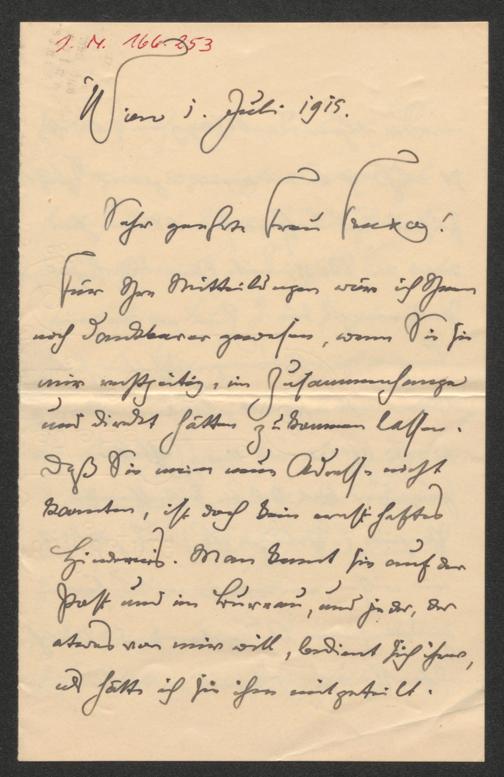 J. N. 166.253
Wien 1. Juli 1915.
Sehr geehrte Frau
Für Ihre Mitteilungen wäre ich Ihnen
noch dankbarer gewesen, wenn Sie sie
mir rechtzeitig, im Zusammenhange
und direkt hätten zukommen lassen.
Daß Sie meine neue Adresse nicht
kannten, ist doch kein ernsthaftes
Hindernis. Man kennt sie auf der
Post und im Bureau, und jeder, der
etwas von mir will, bedient sich ihrer,
als hätte ich sie ihm mitgeteilt.